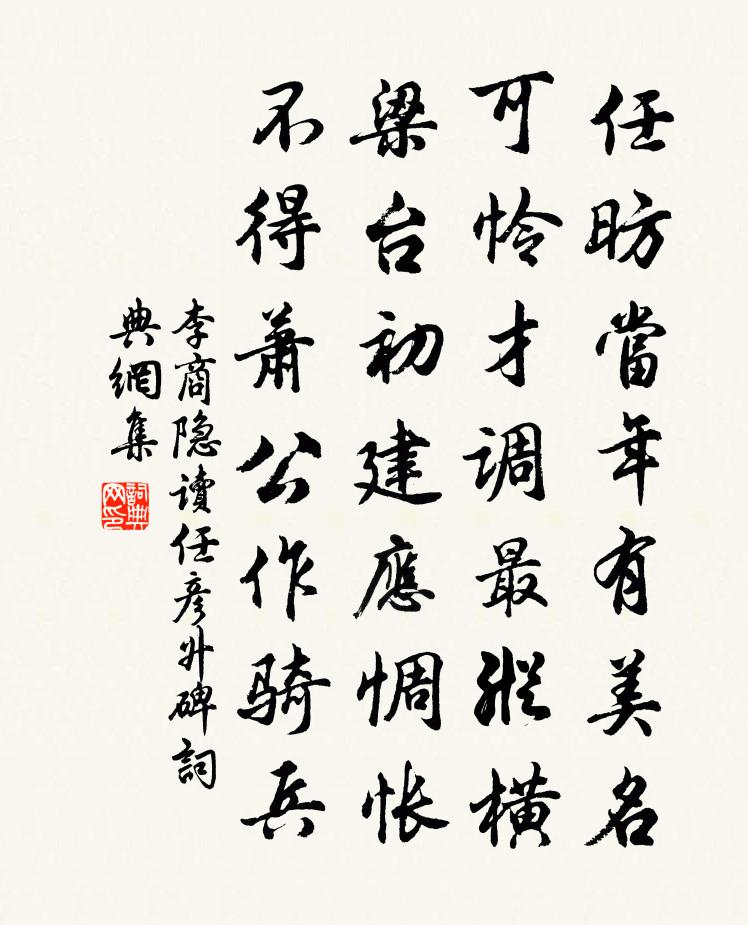 任昉當年有美名
可怜才调最縱橫
梁台初建應惆怅
不得萧公作骑兵
李商隐讀任彦升碑詞
典網集
詞典
网印